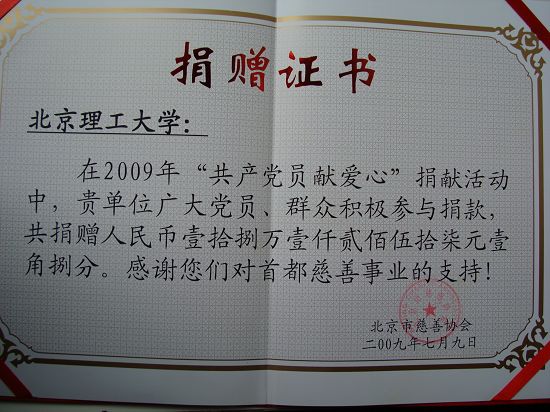 捐赠证书
北京理工大学:
在2009年“共产党员献爱心”捐献活动
中,贵单位广大党员、群众积极参与捐款,
共捐赠人民币壹拾捌万壹仟贰佰伍拾柒元壹
角捌分。感谢您们对首都慈善事业的支持!
北京市慈善协会
二00九年七月九日